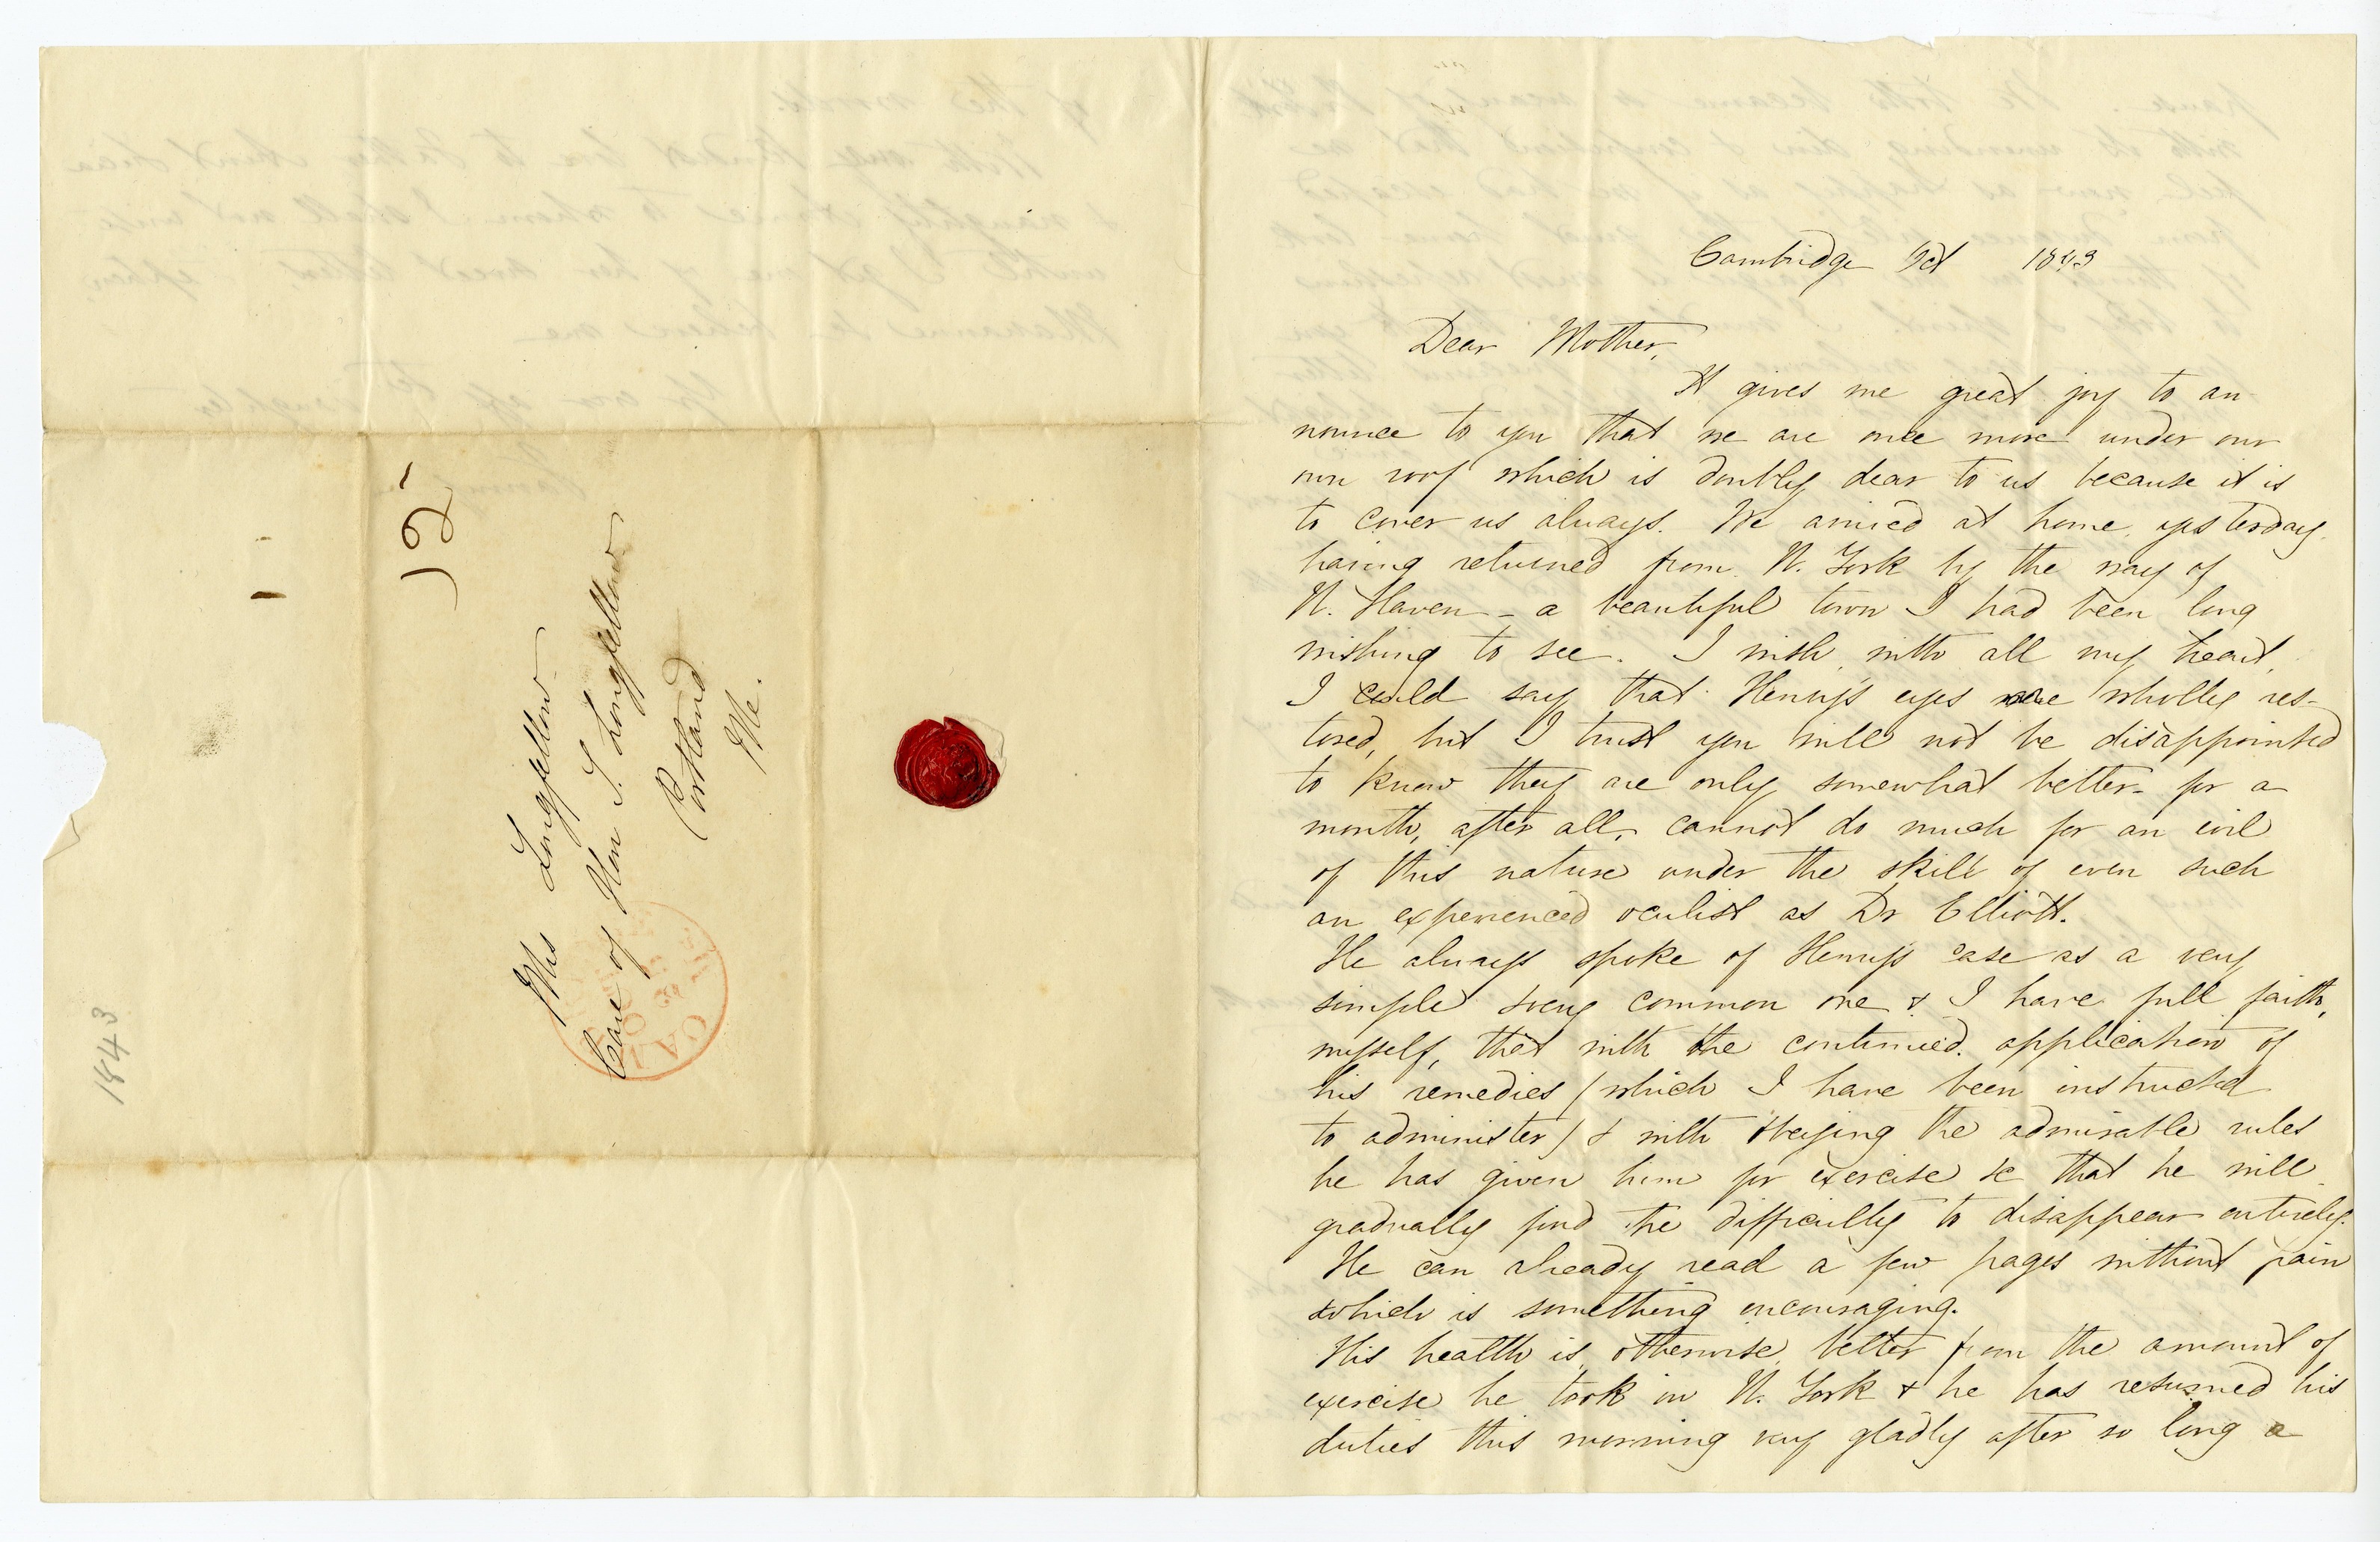 12½
Mrs Longfellow
Care of Hon S. Longfellow
Portland
Me.
1843
Cambridge Oct 1843
Dear Mother,
It gives me great joy to an
nounce to you that we are once more under our
own roof which is doubly dear to us because it is
to cover us always. We arrived at home, yesterday,
having returned from N. York by the way of
N. Haven – a beautiful town I had been long
wishing to see. I wish, with all my heart,
I could say that Henry's eyes were wholly res-
tored, but I trust you will not be disappointed
to know they are only somewhat better – for a
month, after all, cannot do much for an evil
of this nature under the skill of even such
an experienced oculist as Dr Elliott.
He always spoke of Henry's case as a very
simple & very common one & I have full faith,
myself, that with the continued application of
his remedies (which I have been instructed
to administer) & with obeying the admirable rules
he has given him for exercise &c that he will
gradually find the difficulty to disappear entirely.
He can already read a few pages without pain
which is something encouraging.
His health is, otherwise, better from the amount of
exercise he took in N. York & he has resumed his
duties this morning very gladly after so long a